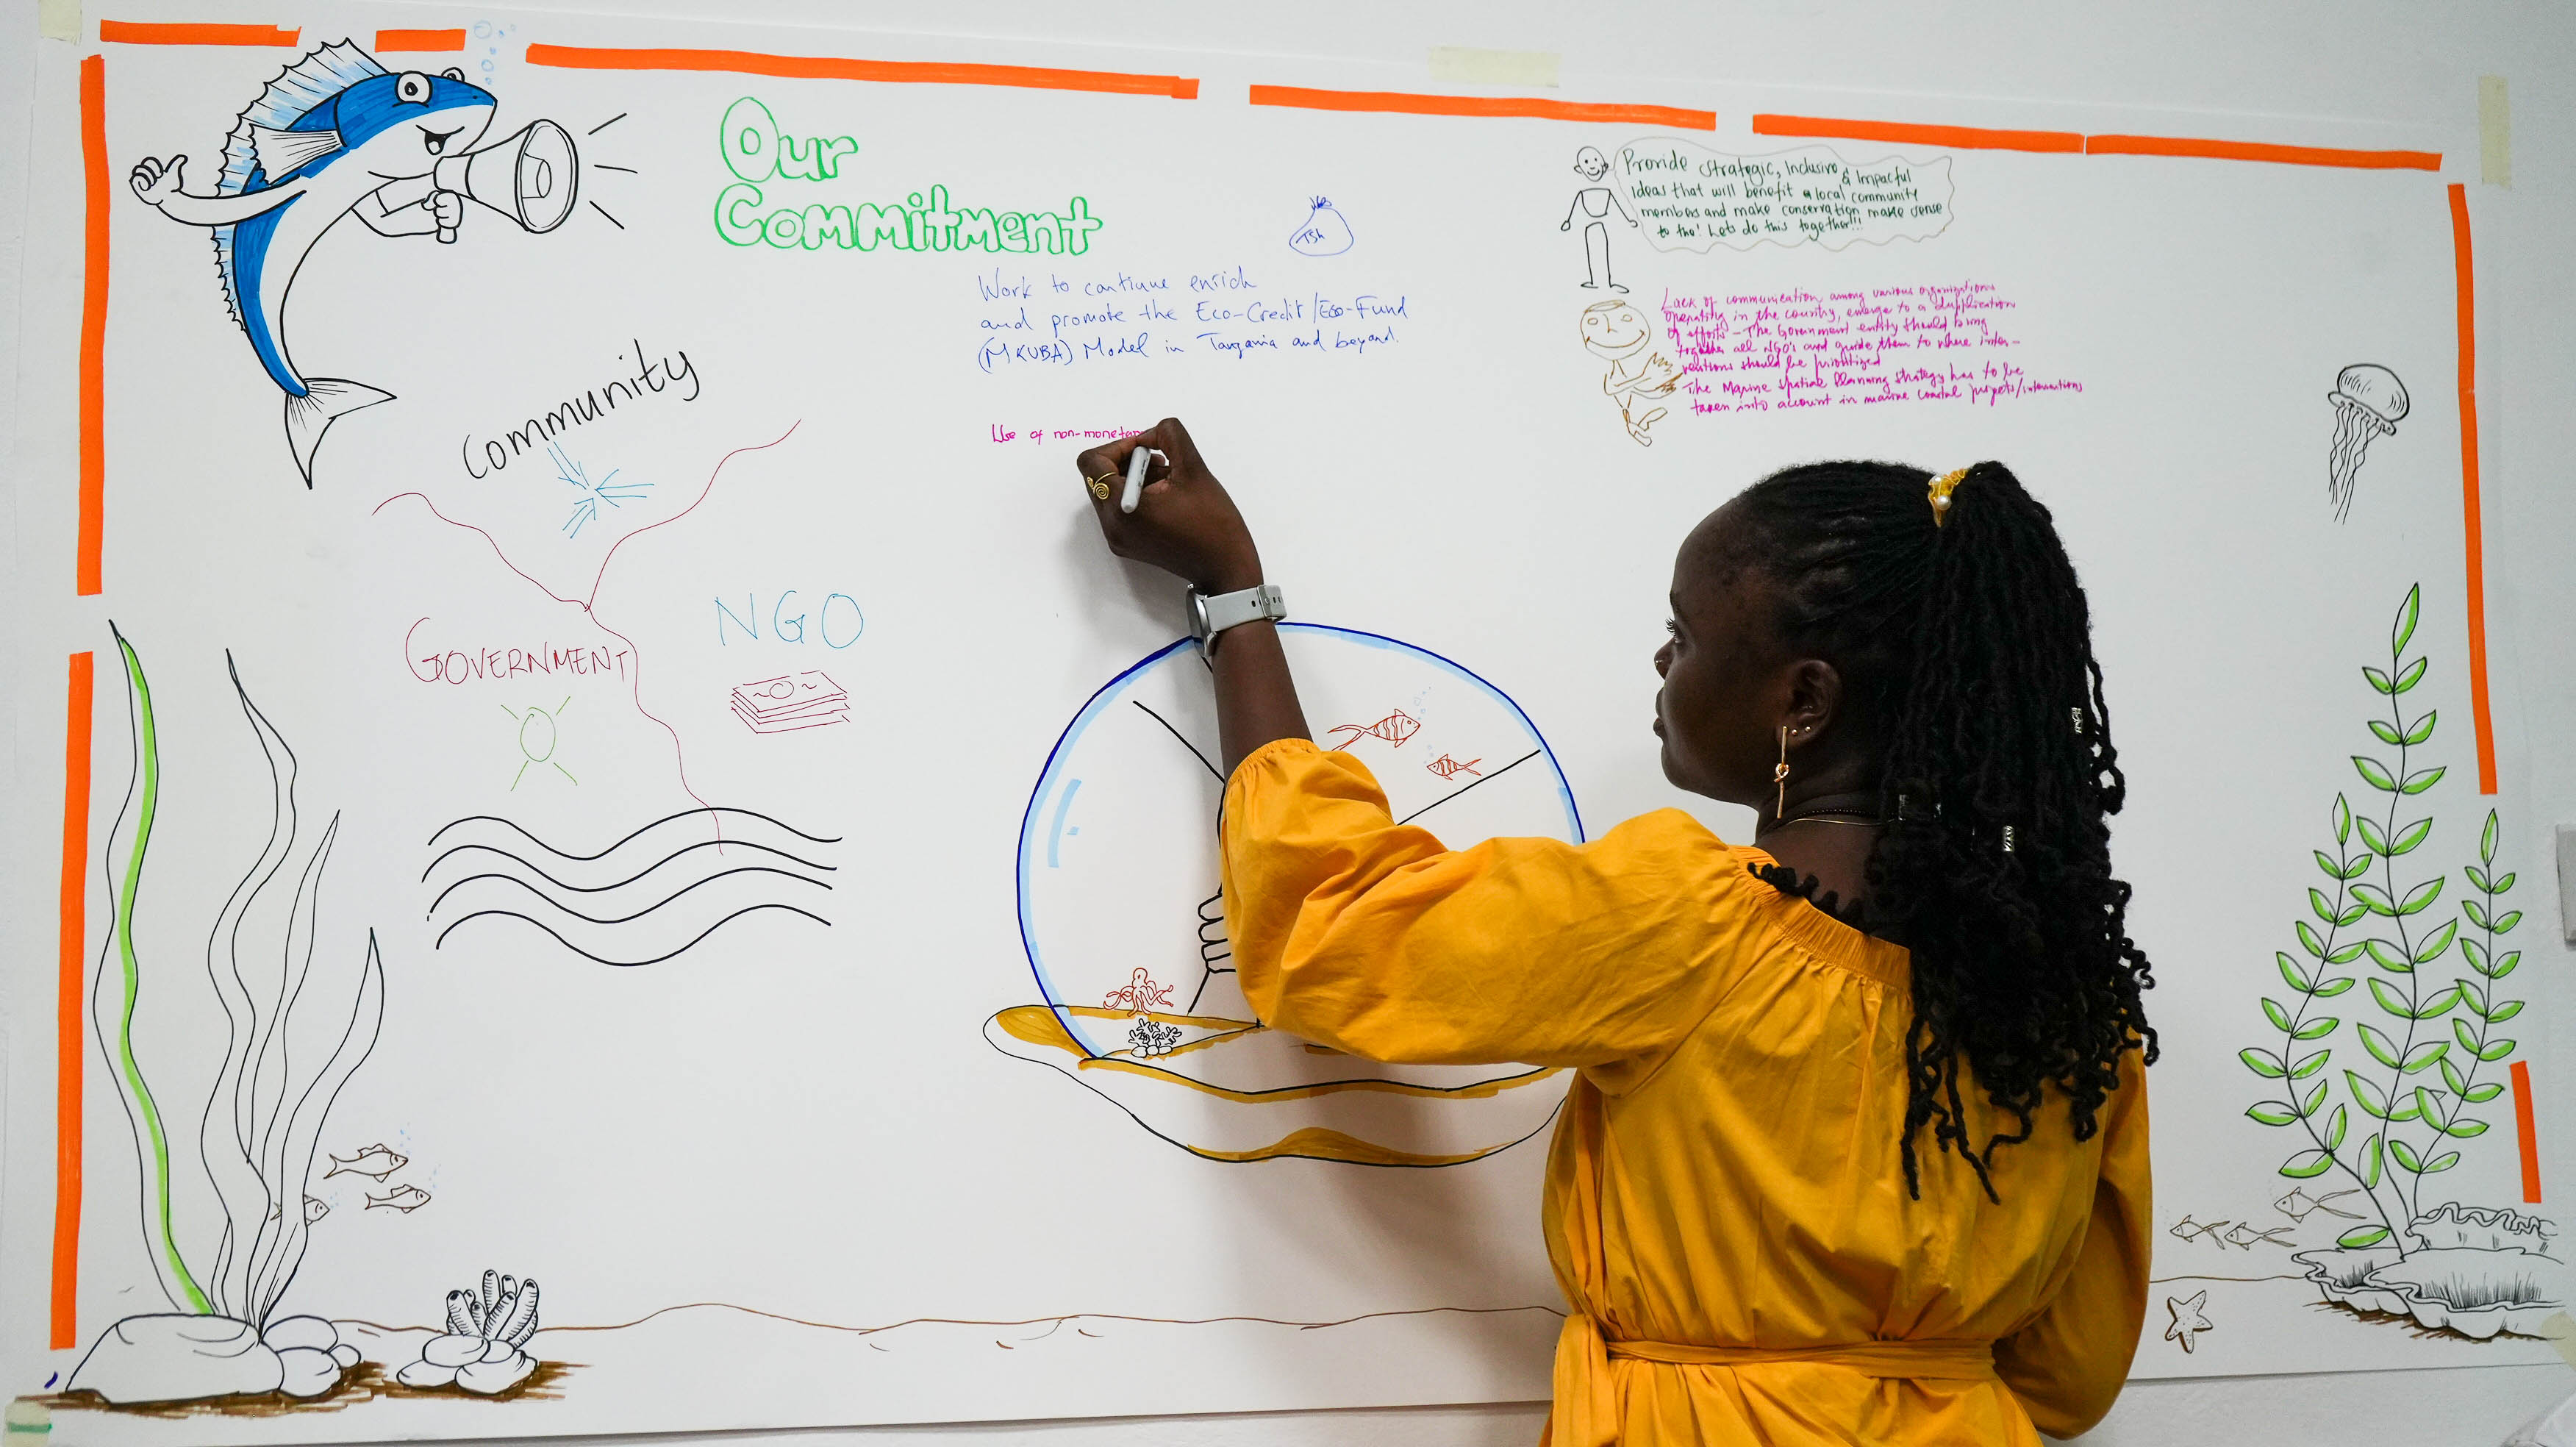 Our
Commitment
TSh
Work to continue enrich
and promote the Eco-Credit/Eco-Fund
(MKUBA) Model in Tanzania and beyond.
Use of non-monetary
Provide Strategic, Inclusive & Impactful
ideas that will benefit local community
members and make conservation make sense
to the! Lets do this together!!!
Lack of communication among various organizations
operating in the country, emerge to a dupplication
of efforts - The Government entity should bring
together all NGO's and guide them to where inter-
ventions should be prioritized
The Marine Spatial Planning strategy has to be
taken into account in marine coastal projects/interventions
Community
GOVERNMENT
NGO